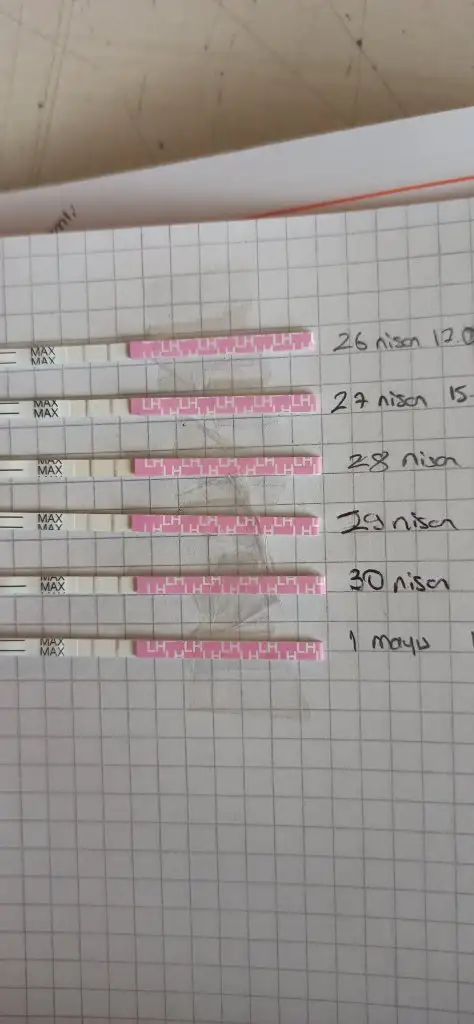 MAX
MAX
LH LH LH LH LH LH
26 nisan
MAX
MAX
LH LH LH LH LH LH
27 nisan 15
MAX
MAX
LH LH LH LH LH LH
28 nisan
MAX
MAX
LH LH LH LH LH LH
29 nisan
MAX
MAX
LH LH LH LH LH LH
30 nisan
MAX
MAX
LH LH LH LH LH LH
1 mayıs